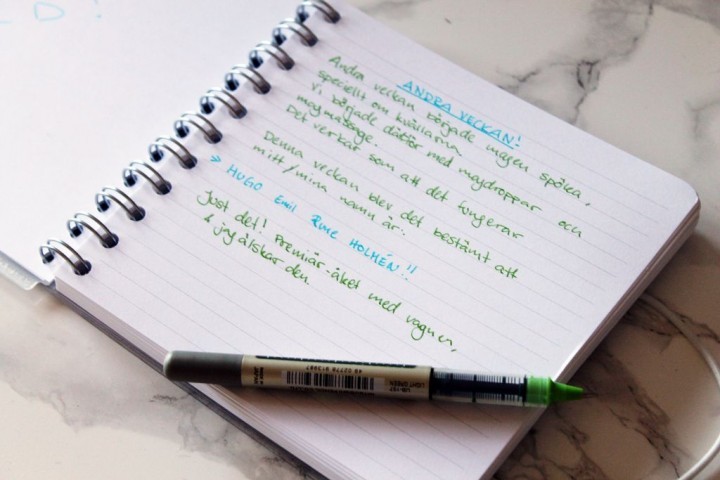 D!
ANDRA VECKAN!
Andra veckan började magen spöka,
speciellt om kvällarna.
Vi började därför med magdroppar och
magmassage.
Det verkar som att det fungerar
Denna veckan blev det bestämt att
mitt/mina namn är:
» HUGO Emil Rune HOLMÉN!!
Just det! Premiär-åket med vagnen,
& jag älskar den.
UB-157
LIGHT GREEN